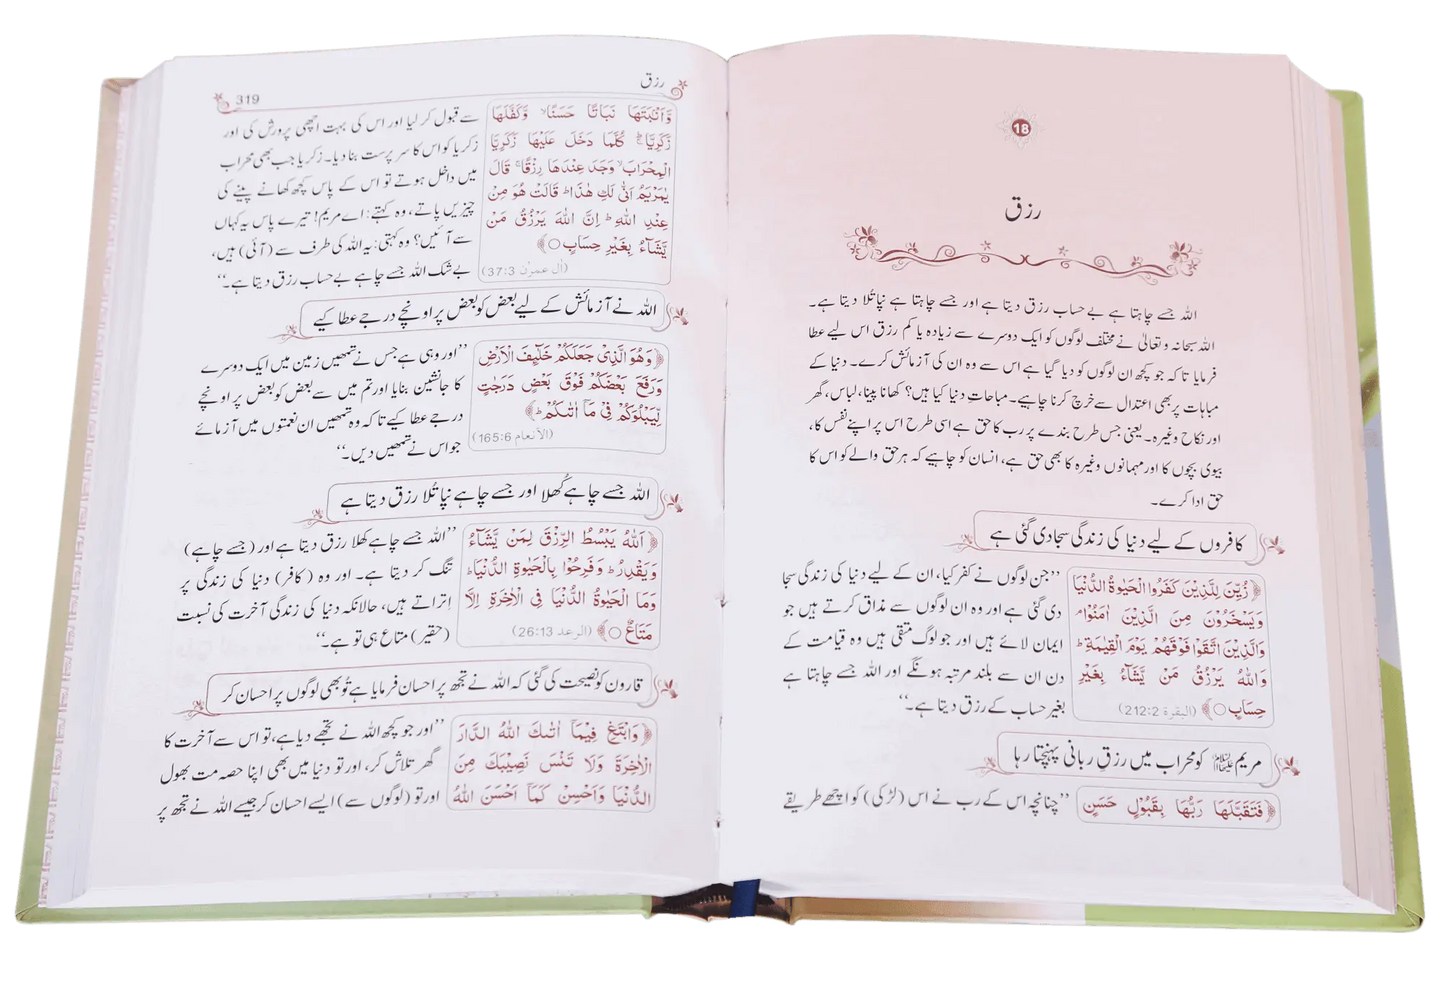 18
رزق
اللہ جسے چاہتا ہے بے حساب رزق دیتا ہے اور جسے چاہتا ہے نپا تُلا دیتا ہے۔
اللہ سبحانہ و تعالیٰ نے مختلف لوگوں کو ایک دوسرے سے زیادہ یا کم رزق اس لیے عطا
فرمایا تاکہ جو کچھ ان لوگوں کو دیا گیا ہے اس سے وہ ان کی آزمائش کرے۔ دنیا کے
مباہات پر بھی اعتدال سے خرچ کرنا چاہیے۔ مباحاتِ دنیا کیا ہیں؟ کھانا پینا، لباس، گھر
اور نکاح وغیرہ۔ یعنی جس طرح بندے پر رب کا حق ہے اسی طرح اس پر اپنے نفس کا،
بیوی بچوں کا اور مہمانوں وغیرہ کا بھی حق ہے، انسان کو چاہیے کہ ہر حق والے کو اس کا
حق ادا کرے۔
کافروں کے لیے دنیا کی زندگی سجا دی گئی ہے
زُيِّنَ لِلَّذِيْنَ كَفَرُوا الْحَيٰوةُ الدُّنْيَا
وَيَسْخَرُوْنَ مِنَ الَّذِيْنَ اٰمَنُوْا ۘ
وَالَّذِيْنَ اتَّقَوْا فَوْقَهُمْ يَوْمَ الْقِيٰمَةِ ؕ
وَاللّٰهُ يَرْزُقُ مَنْ يَّشَآءُ بِغَيْرِ
حِسَابٍ ○ (البقرة 212:2)
’’جن لوگوں نے کفر کیا، ان کے لیے دنیا کی زندگی سجا
دی گئی ہے اور وہ ان لوگوں سے مذاق کرتے ہیں جو
ایمان لائے ہیں اور جو لوگ متقی ہیں وہ قیامت کے
دن ان سے بلند مرتبہ ہونگے اور اللہ جسے چاہتا ہے
بغیر حساب کے رزق دیتا ہے۔‘‘
مریم علیہا السلام کو محراب میں رزقِ ربانی پہنچتا رہا
فَتَقَبَّلَهَا رَبُّهَا بِقَبُوْلٍ حَسَنٍ
’’چنانچہ اس کے رب نے اس (لڑکی) کو اچھے طریقے
رزق
319
وَّاَنْۢبَتَهَا نَبَاتًا حَسَنًا ۙ وَّكَفَّلَهَا
زَكَرِيَّا ؕ كُلَّمَا دَخَلَ عَلَيْهَا زَكَرِيَّا
الْمِحْرَابَ ۙ وَجَدَ عِنْدَهَا رِزْقًا ۚ قَالَ
يٰمَرْيَمُ اَنّٰى لَكِ هٰذَا ؕ قَالَتْ هُوَ مِنْ
عِنْدِ اللّٰهِ ؕ اِنَّ اللّٰهَ يَرْزُقُ مَنْ
يَّشَآءُ بِغَيْرِ حِسَابٍ ○
(اٰل عمرٰن 37:3)
سے قبول کر لیا اور اس کی بہت اچھی پرورش کی اور
زکریا کو اس کا سر پرست بنا دیا۔ زکریا جب بھی محراب
میں داخل ہوتے تو اس کے پاس کچھ کھانے پینے کی
چیزیں پاتے، وہ کہتے: اے مریم! تیرے پاس یہ کہاں
سے آئیں؟ وہ کہتی: یہ اللہ کی طرف سے (آئی) ہیں،
بے شک اللہ جسے چاہے بے حساب رزق دیتا ہے۔‘‘
اللہ نے آزمائش کے لیے بعض کو بعض پر اونچے درجے عطا کیے
وَهُوَ الَّذِيْ جَعَلَكُمْ خَلٰٓئِفَ الْاَرْضِ
وَرَفَعَ بَعْضَكُمْ فَوْقَ بَعْضٍ دَرَجٰتٍ
لِّيَبْلُوَكُمْ فِيْ مَاۤ اٰتٰىكُمْ ؕ
(الأنعام 165:6)
’’اور وہی ہے جس نے تمھیں زمین میں ایک دوسرے
کا جانشین بنایا اور تم میں سے بعض کو بعض پر اونچے
درجے عطا کیے تاکہ وہ تمھیں ان نعمتوں میں آزمائے
جو اس نے تمھیں دیں۔‘‘
اللہ جسے چاہے کُھلا اور جسے چاہے نپا تُلا رزق دیتا ہے
اَللّٰهُ يَبْسُطُ الرِّزْقَ لِمَنْ يَّشَآءُ
وَيَقْدِرُ ؕ وَفَرِحُوْا بِالْحَيٰوةِ الدُّنْيَا ؕ
وَمَا الْحَيٰوةُ الدُّنْيَا فِي الْاٰخِرَةِ اِلَّا
مَتَاعٌ ○ (الرعد 26:13)
’’اللہ جسے چاہے کھلا رزق دیتا ہے اور (جسے چاہے)
تنگ کر دیتا ہے۔ اور وہ (کافر) دنیا کی زندگی پر
اِتراتے ہیں، حالانکہ دنیا کی زندگی آخرت کی نسبت
(حقیر) متاع ہی تو ہے۔‘‘
قارون کو نصیحت کی گئی کہ اللہ نے تجھ پر احسان فرمایا ہے تُو بھی لوگوں پر احسان کر
وَابْتَغِ فِيْمَاۤ اٰتٰىكَ اللّٰهُ الدَّارَ
الْاٰخِرَةَ وَلَا تَنْسَ نَصِيْبَكَ مِنَ
الدُّنْيَا وَاَحْسِنْ كَمَاۤ اَحْسَنَ اللّٰهُ
’’اور جو کچھ اللہ نے تجھے دیا ہے، تو اس سے آخرت کا
گھر تلاش کر، اور تو دنیا میں بھی اپنا حصہ مت بھول
اور تو (لوگوں سے) ایسے احسان کر جیسے اللہ نے تجھ پر